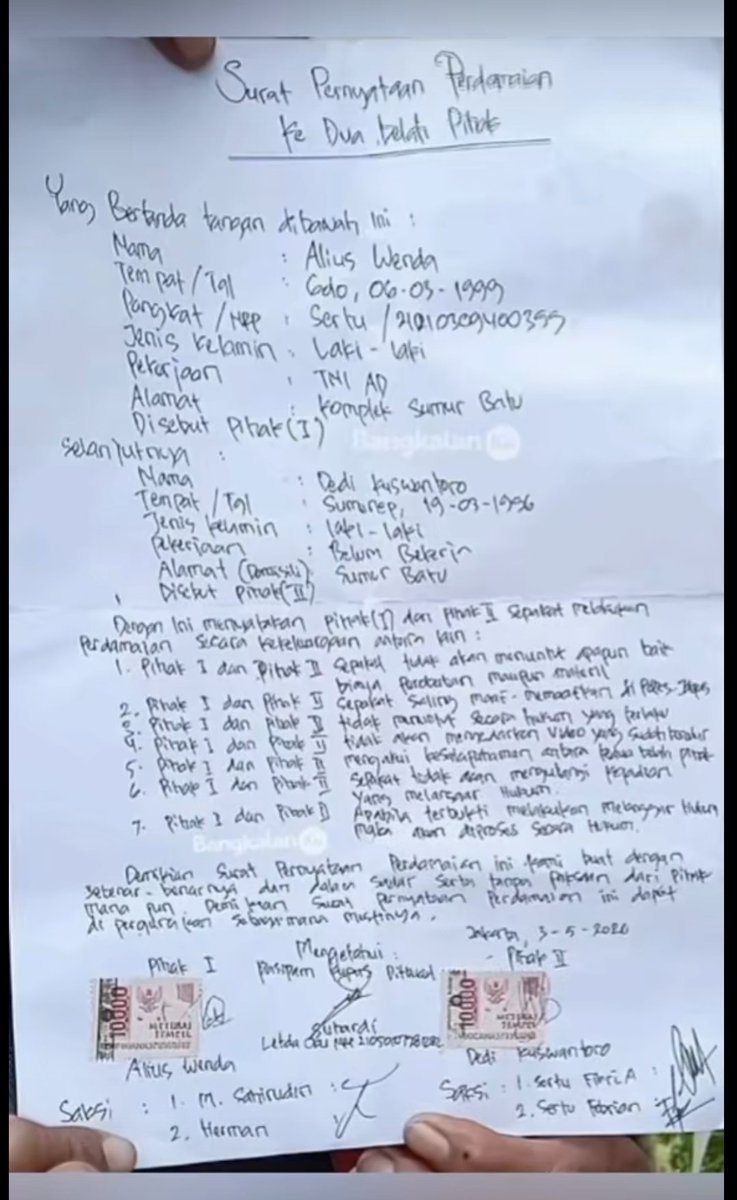 Surat Pernyataan Perdamaian
Ke Dua belah Pihak
Yang Bertanda tangan dibawah ini :
Nama : Alius Wenda
Tempat/Tgl : Gdo, 06-03-1999
Pangkat/NRP : Sertu /
Jenis Kelamin : Laki-laki
Pekerjaan : TNI AD
Alamat : Komplek Sumur Batu
Disebut Pihak (I)
Selanjutnya :
Nama : Dedi Kuswantoro
Tempat/Tgl : Sumenep, 19-03-1996
Jenis kelamin : laki-laki
Pekerjaan : Belum Bekerja
Alamat (Domisili) : Sumur Batu
Disebut Pihak (II)
Bangkalan
Dengan Ini menyatakan Pihak (I) dan Pihak II Sepakat melakukan
Perdamaian Secara kekeluargaan antara lain :
1. Pihak I dan Pihak II Sepakat tidak akan menuntut apapun baik
biaya Perobatan maupun materil
2. Pihak I dan Pihak II Sepakat Saling maaf-memaafkan di
3. Pihak I dan Pihak II tidak menuntut Secara hukum yang berlaku
4. Pihak I dan Pihak II tidak akan mengedarkan Video yang Sudah beredar
5. Pihak I dan Pihak II mengakui kesalapahaman antara kedua belah pihak
6. Pihak I dan Pihak II Sepakat tidak akan mengulangi kejadian
yang melanggar Hukum.
7. Pihak I dan Pihak II Apabila terbukti melakukan melanggar Hukum
maka akan diproses Secara Hukum.
Bangkalan
Demikian Surat Pernyataan Perdamaian ini kami buat dengan
Sebenar-benarnya dan dalam Sadar Serta tanpa Paksaan dari Pihak
mana pun. Demikian Surat Pernyataan Perdamaian ini dapat
di pergunakan Sebagaimana mustinya.
Jakarta, 3-5-2026
Mengetahui :
Pihak I
Pihak II
10000
METERAI
TEMPEL
10000
METERAI
TEMPEL
Sutardi
Letda
Alius Wenda
Dedi Kuswantoro
Saksi : 1. M. Sahirudin :
2. Herman
Saksi : 1. Sertu Fitri A :
2. Sertu Febrian :